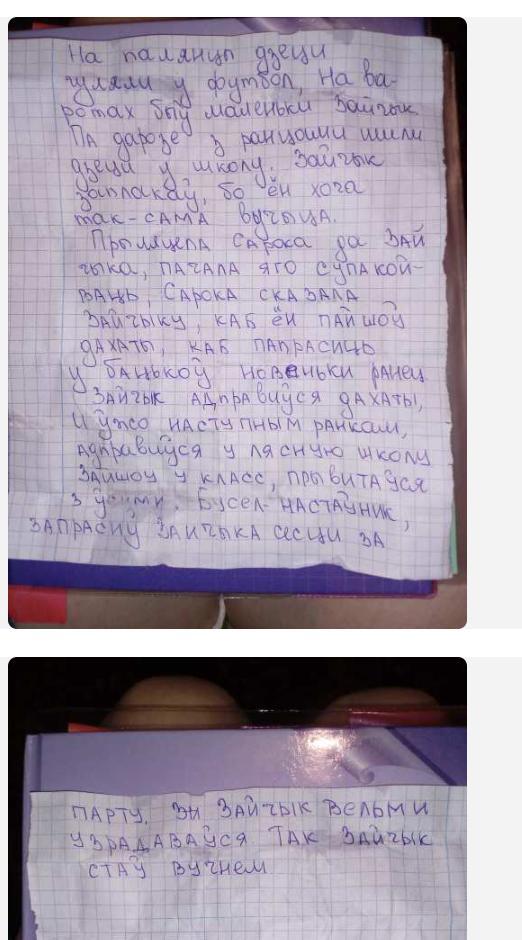 На палянцы дзеци
гуляли у футбол, На ва-
ротах быў маленьки Зайчык
ПА дарозе з ранцами ишли
дзеци у школу. Зайчык
заплакаў, бо ён хоча
так-САМА вучыцА.
Прыляцела САрокА да ЗАЙ
чыка, ПАЧАЛА ЯГО СУПАКОЙ-
ВАЦЬ, САРОКА СКАЗАЛА
ЗАЙЧЫКУ, КАБ ЁН ПАЙШОЎ
ДАХАТЫ, КАБ ПАПРАСИЦЬ
У БАЦЬКОЎ НОВЕНЬКИ РАНЕЦ
ЗАЙЧЫК АДПРАВИЎСЯ ДАХАТЫ,
И ЎЖО НАСТУПНЫМ РАНКАМ,
АДПРАВИЎСЯ У ЛЯСНУЮ ШКОЛУ
ЗАЙШОУ У КЛАСС, ПРЫВИТАЎСЯ
З ЎСИМИ. БУСЕЛ-НАСТАЎНИК,
ЗАПРАСИЎ ЗАЙЧЫКА СЕСЦИ ЗА
ПАРТУ. ЗАЙЧЫК ВЕЛЬМИ
УЗРАДАВАЎСЯ ТАК ЗАЙЧЫК
СТАЎ ВУЧНЕМ